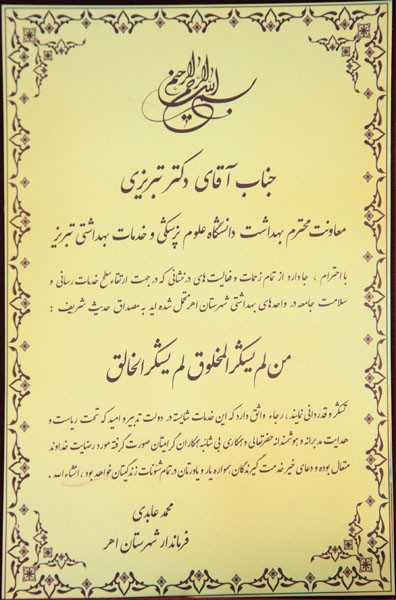 بسم الله الرحمن الرحیم
جناب آقای دکتر تبریزی
معاونت محترم بهداشت دانشگاه علوم پزشکی و خدمات بهداشتی تبریز
با احترام ، جا دارد از تمام زحمات و فعالیت های درخشانی که در جهت ارتقاء سطح خدمات رسانی و
سلامت جامعه در واحدهای بهداشتی شهرستان اهر متحمل شده اید به مصداق حدیث شریف :
من لم یشکر المخلوق لم یشکر الخالق
تشکر و قدردانی نمایند ، رجاء واثق دارد که این خدمات شایسته در دولت تدبیر و امید که تحت ریاست و
هدایت مدبرانه و هوشمندانه حضرتعالی و همکاری بی شائبه همکاران گرامیتان صورت گرفته مورد رضایت خداوند
متعال بوده و دعای خیر خدمت گیرندگان همواره یار و یاورتان در تمام شئونات زندگیتان خواهد بود ، انشاء الله .
محمد عابدی
فرماندار شهرستان اهر